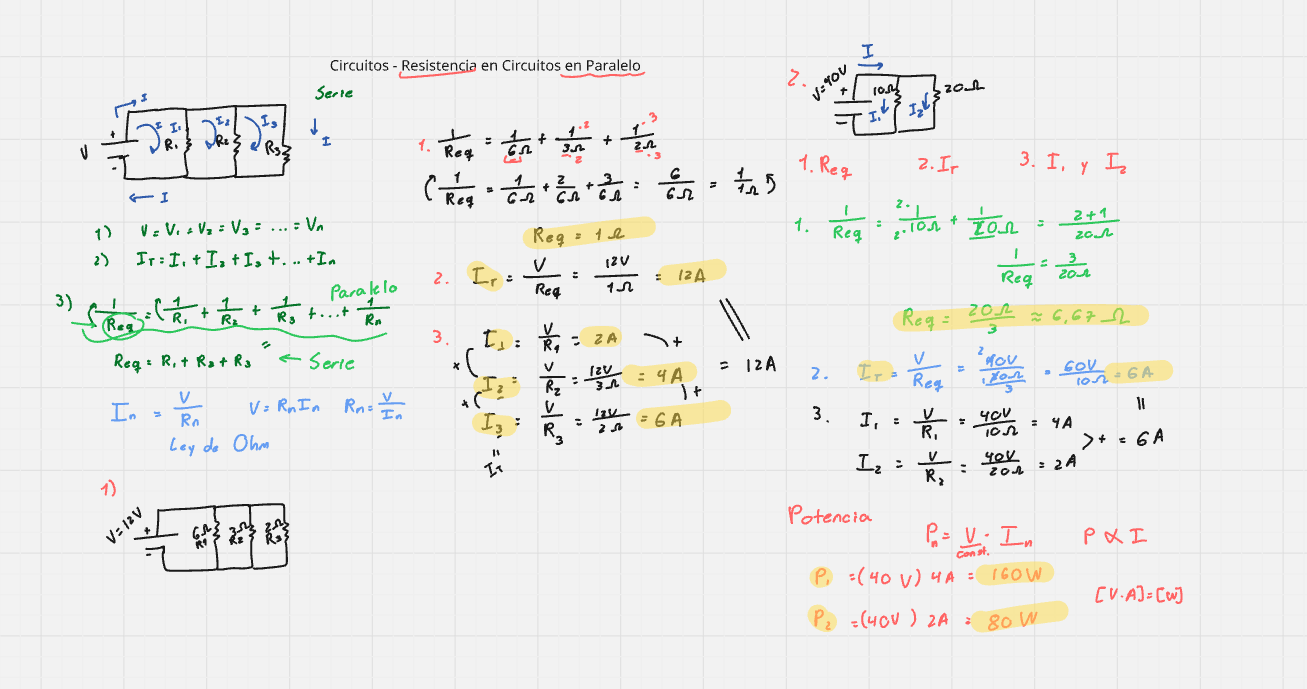 Circuitos - Resistencia en Circuitos en Paralelo
Serie
I
V + - I I₁ R₁ I₂ R₂ I₃ R₃
I
← I
1) V = V₁ = V₂ = V₃ = ... = Vn
2) I_T = I₁ + I₂ + I₃ + ... + In
Paralelo
3) (1/Req = (1/R₁ + 1/R₂ + 1/R₃ + ... + 1/Rn
Req = R₁ + R₂ + R₃ ← Serie
In = V/Rn V = Rn In Rn = V/In
Ley de Ohm
1)
V=12V + - 6Ω R1 3Ω R2 2Ω R3
1. 1/Req = 1/6Ω + 1·2/3Ω·2 + 1·3/2Ω·3
(1/Req = 1/6Ω + 2/6Ω + 3/6Ω = 6/6Ω = 1/1Ω)
Req = 1Ω
2. I_T = V/Req = 12V/1Ω = 12A
3. I₁ = V/R1 = 2A
+
I₂ = V/R₂ = 12V/3Ω = 4A = 12A
+
I₃ = V/R₃ = 12V/2Ω = 6A
=
I_T
2. I →
V=40V + - 10Ω I₁ I₂ 20Ω
1. Req 2. I_T 3. I₁ y I₂
1. 1/Req = 2·1/2·10Ω + 1/20Ω = 2+1/20Ω
1/Req = 3/20Ω
Req = 20Ω/3 ≈ 6,67 Ω
2. I_T = V/Req = 40V/(20Ω/3) = 60V/10Ω = 6A
=
3. I₁ = V/R₁ = 40V/10Ω = 4A
> + = 6A
I₂ = V/R₂ = 40V/20Ω = 2A
Potencia
Pn = V · In P ∝ I
const.
P₁ = (40 V) 4A = 160W
[V·A]=[W]
P₂ = (40V) 2A = 80W